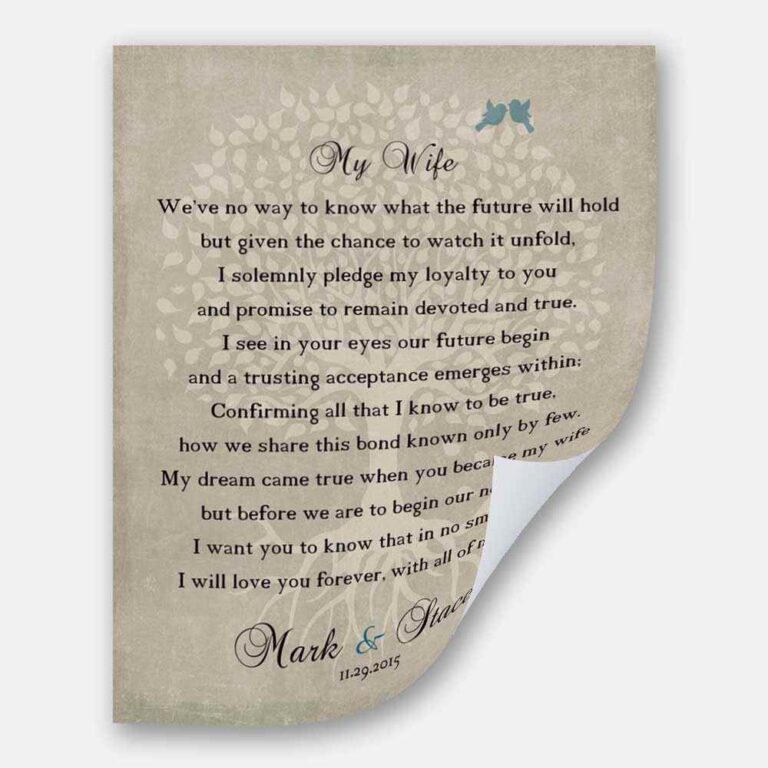 My Wife
We've no way to know what the future will hold
but given the chance to watch it unfold,
I solemnly pledge my loyalty to you
and promise to remain devoted and true.
I see in your eyes our future begin
and a trusting acceptance emerges within;
Confirming all that I know to be true,
how we share this bond known only by few.
My dream came true when you my wife
but before we are to begin our
I want you to know that in no
I will love you forever, with all of
Mark &
11.29.2015